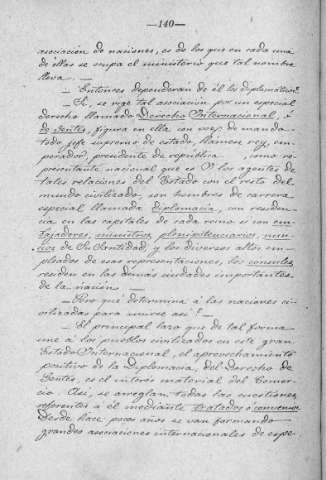 —140—
asociación de naciones, es de los que en cada una
de ellas se ocupa el ministerio que tal nombre
lleva. —
— Entonces dependerán de él los diplomáticos?
— Sí, se rige tal asociación por un especial
derecho llamado Derecho Internacional, ó
de Gentes, figura en ella con voz de mando
todo jefe supremo de estado, llámese rey, em-
perador, presidente de república, como re-
presentante nacional que es. Y los agentes de
tales relaciones del Estado con el resto del
mundo civilizado, son hombres de carrera
especial llamada diplomacia, con residen-
cia en las capitales de cada reino si son em-
bajadores, ministros plenipotenciarios, nun-
cios de Su Santidad, y los diversos altos em-
pleados de esas representaciones, los consules
residen en las demás ciudades importantes
de la nación. —
— Pero qué determina á las naciones ci-
vilizadas para unirse así? —
— El principal lazo que de tal forma
une á los pueblos civilizados en este gran
Estado Internacional, el aprovechamiento
positivo de la Diplomacia, del Derecho de
Gentes, es el interés material del Comer-
cio. Así, se arreglan todas las cuestiones
referentes á él mediante tratados ó convenios.
Desde hace pocos años se van formando
grandes asociaciones internacionales de espe-